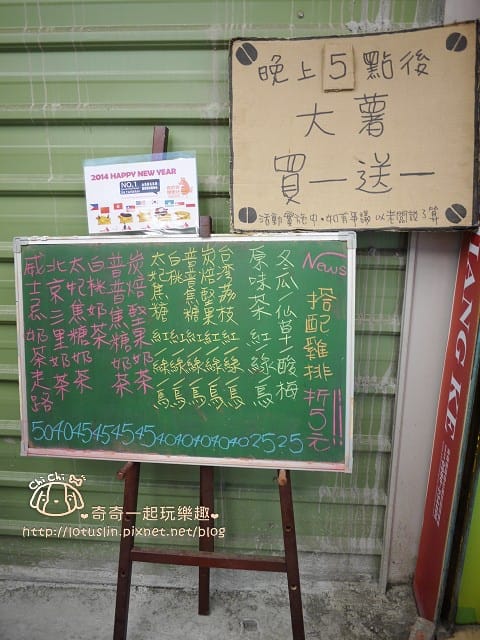 晚上5點後
大薯
買一送一
活動實施中·如有爭議 以老闆說了算
2014 HAPPY NEW YEAR
NO.1
News
搭配雞排折5元!!
冬瓜/仙草/酸梅 25
原味茶 紅/綠/烏 25
台湾荔枝 紅/綠/烏 40
炭焙堅果 紅/綠/烏 40
普普焦糖 紅/綠/烏 40
白桃 紅/綠/烏 40
太妃焦糖 紅/綠/烏
炭焙堅果奶茶 45
普普焦糖奶茶 45
白桃奶茶 45
太妃焦糖奶茶 45
北京三里奶茶 40
威士忌奶茶走路 50
ANG KE
Chi Chi
奇奇一起玩樂趣
http://lotuslin.pixnet.net/blog